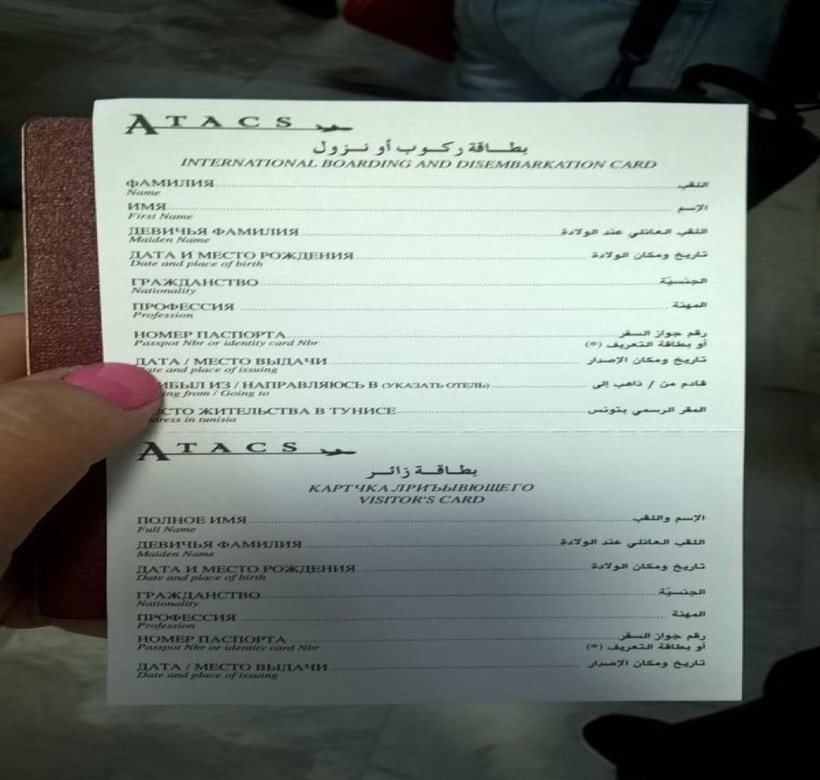 ATACS
بطاقة ركوب أو نزول
INTERNATIONAL BOARDING AND DISEMBARKATION CARD
ФАМИЛИЯ اللقب
Name
ИМЯ الإسم
First Name
ДЕВИЧЬЯ ФАМИЛИЯ اللقب العائلي عند الولادة
Maiden Name
ДАТА И МЕСТО РОЖДЕНИЯ تاريخ ومكان الولادة
Date and place of birth
ГРАЖДАНСТВО الجنسيّة
Nationality
ПРОФЕССИЯ المهنة
Profession
НОМЕР ПАСПОРТА رقم جواز السفر
Passpot Nbr or identity card Nbr أو بطاقة التعريف (*)
ДАТА / МЕСТО ВЫДАЧИ تاريخ ومكان الإصدار
ate and place of issuing
ИБЫЛ ИЗ / НАПРАВЛЯЮСЬ В (УКАЗАТЬ ОТЕЛЬ) قادم من / ذاهب إلى
ing from / Going to
СТО ЖИТЕЛЬСТВА В ТУНИСЕ المقر الرسمي بتونس
dress in tunisia
ATACS
بطاقة زائر
КАРТЧКА ЛРИЪЫВЮЩЕГО
VISITOR'S CARD
ПОЛНОЕ ИМЯ الإسم واللقب
Full Name
ДЕВИЧЬЯ ФАМИЛИЯ اللقب العائلي عند الولادة
Maiden Name
ДАТА И МЕСТО РОЖДЕНИЯ تاريخ ومكان الولادة
Date and place of birth
ГРАЖДАНСТВО الجنسيّة
Nationality
ПРОФЕССИЯ المهنة
Profession
НОМЕР ПАСПОРТА رقم جواز السفر
Passpot Nbr or identity card Nbr أو بطاقة التعريف (*)
ДАТА / МЕСТО ВЫДАЧИ تاريخ ومكان الإصدار
Date and place of issuing